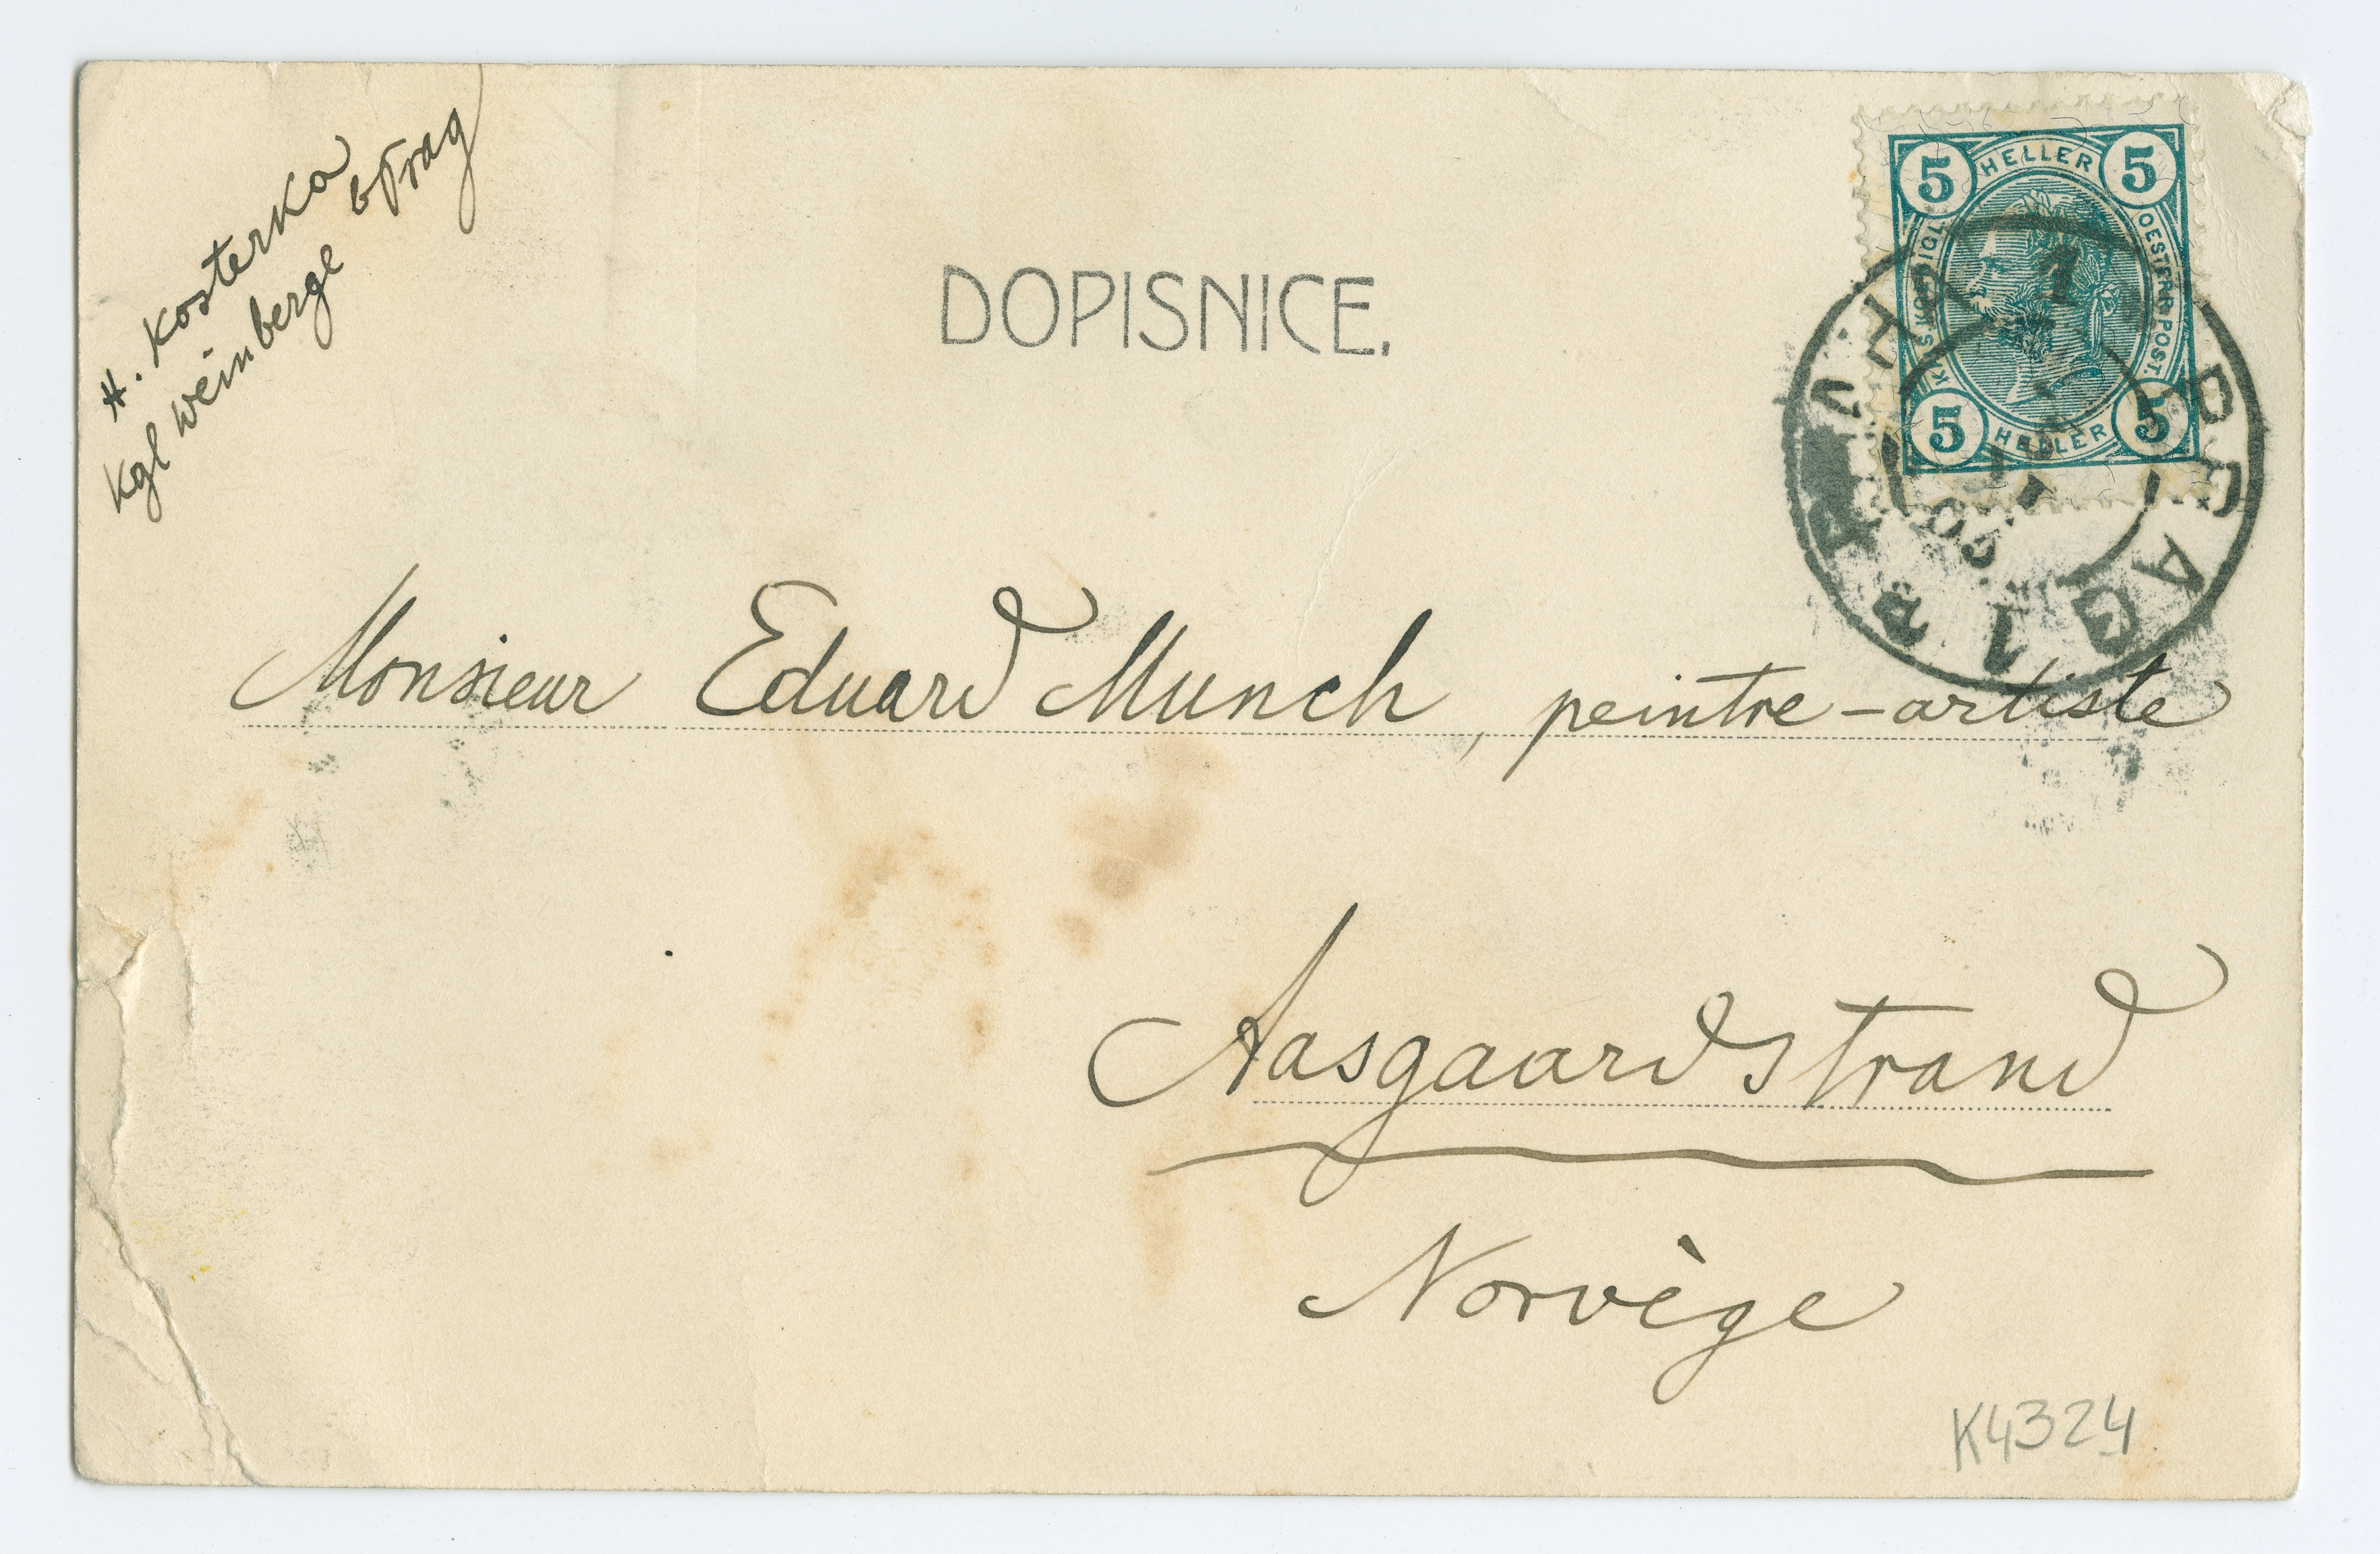 H. Kosterka
Kgl Weinberge b Prag
DOPISNICE.
5 HELLER 5
KAIS. KÖNIGL. OESTERR. POST.
5 HELLER 5
PRAG
1 PRAHA
Monsieur Eduard Munch, peintre-artiste
Aasgaardstrand
Norvège
K4324